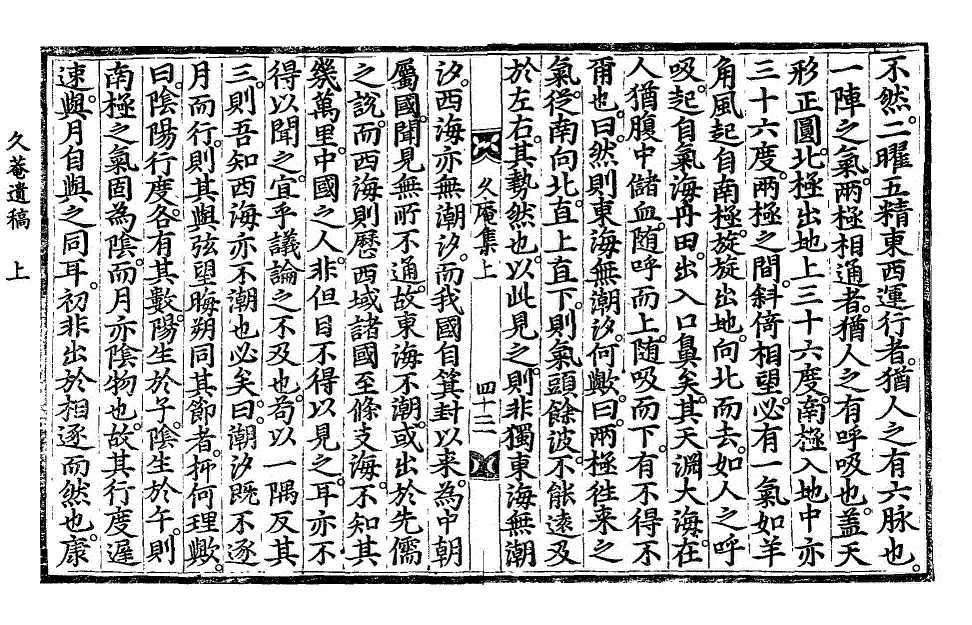 不然。二曜五精東西運行者。猶人之有六脉也。
一陣之氣。兩極相通者。猶人之有呼吸也。蓋天
形正圓。北極出地上三十六度。南極入地中亦
三十六度。兩極之間。斜倚相望。必有一氣如羊
角風起自南極。旋旋出地。向北而去。如人之呼
吸。起自氣海丹田。出入口鼻矣。其天淵大海。在
人猶腹中儲血。隨呼而上。隨吸而下。有不得不
爾也。曰。然則東海無潮汐。何歟。曰。兩極往來之
氣。從南向北。直上直下。則氣頭餘波。不能遠及
於左右。其勢然也。以此見之。則非獨東海無潮
久庵集上 四十三
汐。西海亦無潮汐。而我國自箕封以来。為中朝
屬國。聞見無所不通。故東海不潮。或出於先儒
之說。而西海則歷西域諸國至條支海。不知其
幾萬里。中國之人。非但目不得以見之。耳亦不
得以聞之。宜乎議論之不及也。苟以一隅反其
三。則吾知西海亦不潮也必矣。曰。潮汐旣不逐
月而行。則其與弦望晦朔同其節者。抑何理歟。
曰。陰陽行度。各有其數。陽生於子。陰生於午。則
南極之氣固為陰。而月亦陰物也。故其行度遲
速。與月自與之同耳。初非出於相逐而然也。康
久菴遺稿 上